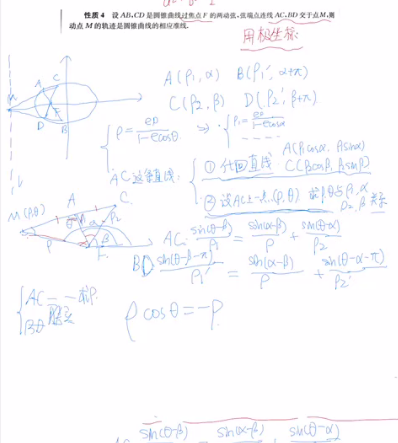 性质 4 设 AB,CD 是圆锥曲线过焦点 F 的两动弦,弦端点连线 AC,BD 交于点M,则
动点 M 的轨迹是圆锥曲线的相应准线.
用极坐标
A(ρ₁,α) B(ρ₁′,α+π)
C(ρ₂,β) D(ρ₂′,β+π)
ρ=ep/(1-ecosθ) → ρ₁=ep/(1-ecosα)
AC 这条直线:
① 代回直线 A(ρ₁cosα, ρ₁sinα)
C(ρ₂cosβ, ρ₂sinβ)
② 设AC上一点(ρ,θ)
M(ρ,θ)
AC: sin(θ-β)/ρ₁ = sin(α-β)/ρ + sin(θ-α)/ρ₂
BD sin(θ-β-π)/ρ₁′ = sin(α-β)/ρ + sin(θ-α-π)/ρ₂′
ρcosθ=-p
sin(θ-β) sin(α-β) sin(θ-α)